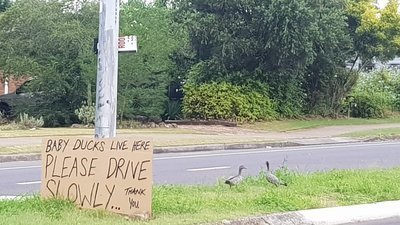 BABY DUCKS LIVE HERE
PLEASE DRIVE
SLOWLY... THANK
YOU